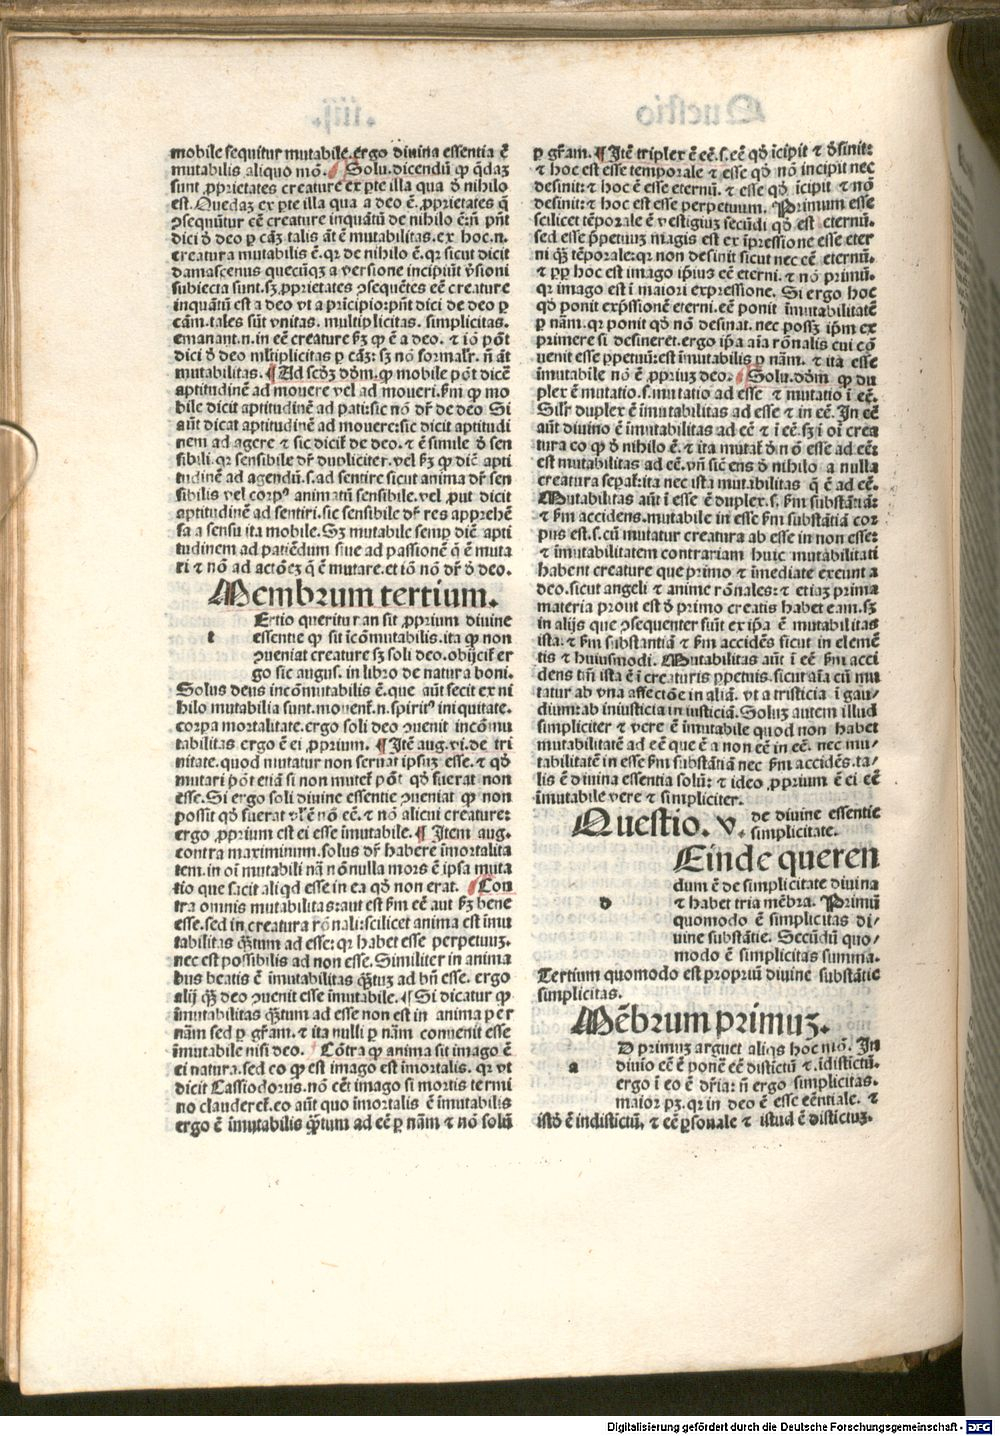 mobile sequitur mutabile.ergo diuina essentia ē
mutabilis aliquo mō. ¶ Solu.dicendū ꝙ q̄daꝫ
sunt ꝓprietates creature ex ꝑte illa qua ð nihilo
est.Quedaꝫ ex ꝑte illa qua a deo ē.ꝓprietates q̄
ꝯsequūtur eē creature inquātū de nihilo ē:n̄ pn̄t
dici ð deo ꝑ cāꝫ talis āt ē mutabilitas.ex hoc.n.
creatura mutabilis ē.qr de nihilo ē.qr sicut dicit
damascenus quecūqꝫ a versione incipiūt ꝟsioni
subiecta sunt.sꝫ ꝓprietates ꝯsequētes eē creature
inquātū est a deo vt a prīcipio:pn̄t dici de deo ꝑ
cām.tales sūt vnitas. multiplicitas. simplicitas.
emanant.n.in eē creature ẜꝫ ꝙ ē a deo. ⁊ iō pōt
dici ð deo mltiplicitas ꝑ cāꝫ: sꝫ nō formalr. n̄ āt
mutabilitas. ¶ Ad scðꝫ dðm.ꝙ mobile pōt dicē
aptitudinē ad mouere vel ad moueri.ẜm ꝙ mo
bile dicit aptitudinē ad pati:sic nō dr̄ de deo Si
aūt dicat aptitudinē ad mouere:sic dicit aptitudi
nem ad agere ⁊ sic dicit̄ de deo. ⁊ ē simile ð sen
sibili.qr sensibile dr̄ dupliciter.vel ẜꝫ ꝙ dic̄ apti
tudinē ad agendū.s.ad sentire sicut anima dr̄ sen
sibilis vel corpꝰ animatū sensibile.vel ꝓut dicit
aptitudinē ad sentiri.sic sensibile dr̄ res apprehē
sa a sensu ita mobile.Sꝫ mutabile semꝑ dic̄ apti
tudinem ad patiēdum siue ad passionē q̄ ē muta
ri ⁊ nō ad actōeꝫ q̄ ē mutare.et iō nō dr̄ ð deo.
Membrum tertium.
t Ertio queritur an sit ꝓprium diuine
essentie ꝙ sit īcōmutabilis.ita ꝙ non
ꝯueniat creature sꝫ soli deo.obijcit̄ er
go sic augus.in libro de natura boni.
Solus deus incōmutabilis ē.que aūt fecit ex ni
hilo mutabilia sunt.mouent̄.n.spiritꝰ iniquitate.
corpa mortalitate.ergo soli deo ꝯuenit incōmu
tabilitas ergo ē ei ꝓprium. ¶ Itē aug.vi.de tri
nitate.quod mutatur non seruat ipsuꝫ esse. ⁊ qð
mutari pōt etiā si non mutet̄ pōt qð fuerat non
esse.Si ergo soli diuine essentie ꝯueniat ꝙ non
possit qð fuerat vl'ē nō eē.⁊ nō alicui creature:
ergo ꝓprium est ei esse īmutabile. ¶ Item aug.
contra maximinum.solus dr̄ habere īmortalita
tem.in oī mutabili nā nōnulla mors ē ipsa muta
tio que facit aliqd esse in ea qð non erat. ¶ Con
tra omnis mutabilitas:aut est ẜm eē aut ẜꝫ bene
esse.sed in creatura rōnali:scilicet anima est īmu
tabilitas q̄ꝫtum ad esse: qr habet esse perpetuuꝫ.
nec est possibilis ad non esse.Similiter in anima
bus beatis ē īmutabilitas q̄ꝫtuꝫ ad bn̄ esse. ergo
alij q̄ꝫ deo ꝯuenit esse īmutabile. ¶ Si dicatur ꝙ
īmutabilitas q̄ꝫtum ad esse non est in anima per
nām sed ꝑ gr̄am. ⁊ ita nulli ꝑ nām conuenit esse
īmutabile nisi deo. ¶ Cōtra ꝙ anima sit imago ē
ei natura.sed eo ꝙ est imago est īmortalis. qr vt
dicit Cassiodorus.nō cēt imago si mortis termi
no clauderet̄.eo aūt quo īmortalis ē īmutabilis
ergo ē īmutabilis q̄ꝫtum ad eē ꝑ nām ⁊ nō solū
ꝑ gr̄am. ¶ Itē triplex ē eē.s.eē qð īcipit ⁊ ðsinit:
⁊ hoc est esse temporale ⁊ esse qð nō incipit nec
desinit:⁊ hoc ē esse eternū. ⁊ esse qð īcipit ⁊ nō
desinit:⁊ hoc est esse perpetuum. Primum esse
scilicet tēporale ē vestigiuꝫ secūdi qð est eternū.
sed esse ꝑpetuuꝫ magis est ex īpressione esse eter
ni q̄ꝫ tēporale:qr non desinit sicut nec eē eternū.
⁊ ꝓp hoc est imago ipsius eē eterni.⁊ nō primū.
qr imago est ī maiori expressione. Si ergo hoc
qð ponit expssionē eterni.eē ponit īmutabilitatē
ꝑ nām.qr ponit qð nō desinat.nec possꝫ ipm ex
primere si desineret.ergo ipa aīa rōnalis cui cō
uenit esse ꝑpetuū:est īmutabilis ꝑ nām. ⁊ ita esse
īmutabile nō ē ꝓpriuꝫ deo. ¶ Solu.dðm ꝙ du
plex ē mutatio.s.mutatio ad esse ⁊ mutatio ī eē.
Silr duplex ē īmutabilitas ad esse ⁊ in eē.In eē
aūt diuino ē īmutabilitas ad eē ⁊ ī eē.sꝫ ī oī crea
tura eo ꝙ ð nihilo ē.⁊ ita mutat̄ ð nō esse ad eē:
est mutabilitas ad eē.vn̄ sic ens ð nihilo a nulla
creatura sepat̄:ita nec ista mutabilitas q̄ ē ad eē.
Mutabilitas aūt ī esse ē duplex.s.ẜm substātiā:
⁊ ẜm accidens.mutabile in esse ẜm substātiā cor
pus est.s.cū mutatur creatura ab esse in non esse:
⁊ īmutabilitatem contrariam huic mutabilitati
habent creature que primo ⁊ īmediate exeunt a
deo.sicut angeli ⁊ anime rōnales:⁊ etiaꝫ prima
materia prout est ð primo creatis habet eam.sꝫ
in alijs que ꝯsequenter sunt ex ipa ē mutabilitas
ista:⁊ ẜm substantiā ⁊ ẜm accidēs sicut in elemē
tis ⁊ huiusmodi. Mutabilitas aūt ī eē ẜm acci
dens tm̄ ista ē ī creaturis ꝑpetuis.sicut aīa cū mu
tatur ab vna affectiōe in aliā.vt a tristicia ī gau/
dium:ab iniusticia in iusticiā.Soluꝫ autem illud
simpliciter ⁊ vere ē īmutabile quod non habet
mutabilitatē ad eē que ē a non eē in eē. nec mu/
tabilitatē in esse ẜm substātiā nec ẜm accidēs.ta/
lis ē diuina essentia solū: ⁊ ideo ꝓprium ē ei eē
īmutabile vere ⁊ simpliciter.
Questio. v. de diuine essentie
simplicitate.
d Einde queren
dum ē de simplicitate diuina
⁊ habet tria mēbra. Primū
quomodo ē simplicitas di/
uine substātie. Secūdū quo/
modo ē simplicitas summa.
Tertium quomodo est propriū diuine substātie
simplicitas.
Mēbrum primuꝫ.
a D primuꝫ arguet̄ aliqs hoc mō. In
diuīo eē ē ponē eē distīctū ⁊ īdistīctū.
ergo ī eo ē dr̄ia: n̄ ergo simplicitas.
maior pꝫ.qr in deo ē esse eēntiale. ⁊
istð ē indistīctū. ⁊ eē ꝑsonale ⁊ istud ē distīctuꝫ.
Digitalisierung gefördert durch die Deutsche Forschungsgemeinschaft - DFG